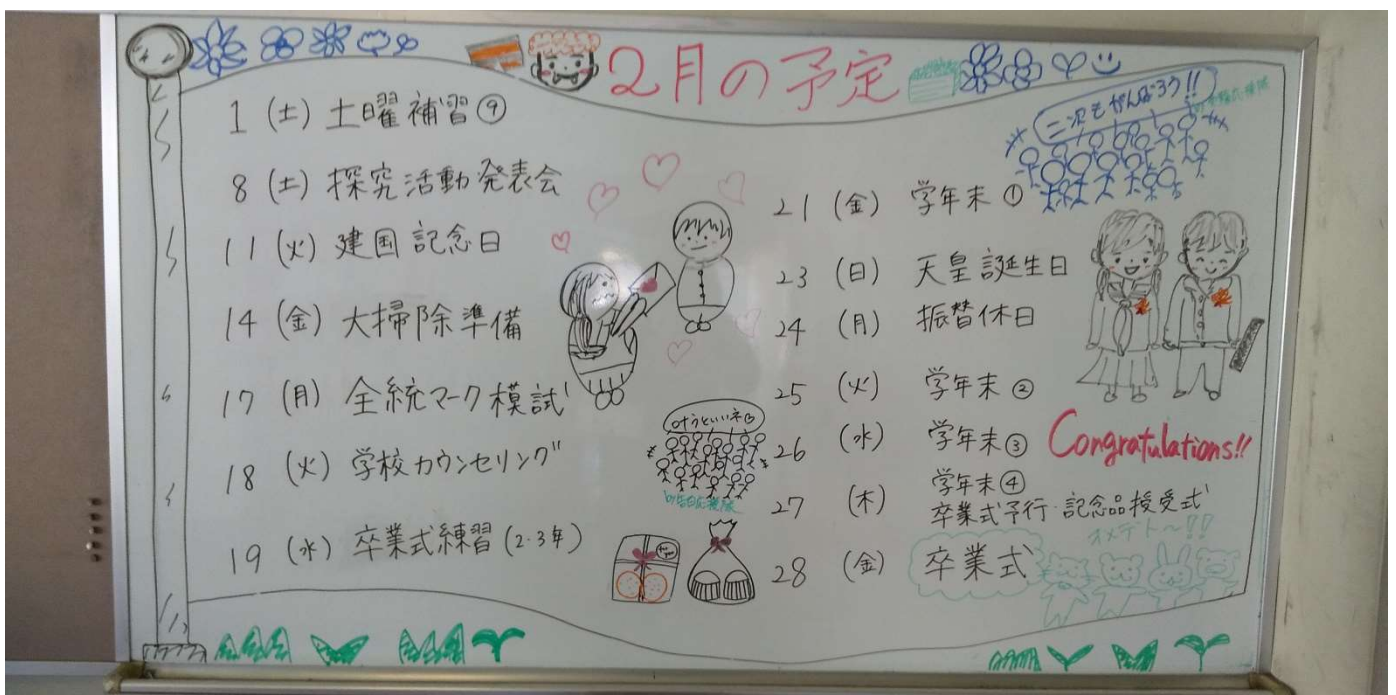 2月の予定
1 (土) 土曜補習⑨
8 (土) 探究活動発表会
11 (火) 建国記念日
14 (金) 大掃除準備
17 (月) 全統マーク模試
18 (火) 学校カウンセリング
19 (水) 卒業式練習(2・3年)
叶うといいネ
二次もがんばろう!!
21 (金) 学年末①
23 (日) 天皇誕生日
24 (月) 振替休日
25 (火) 学年末②
26 (水) 学年末③
27 (木) 学年末④
卒業式予行・記念品授受式
28 (金) 卒業式
Congratulations!!
オメデト〜!!